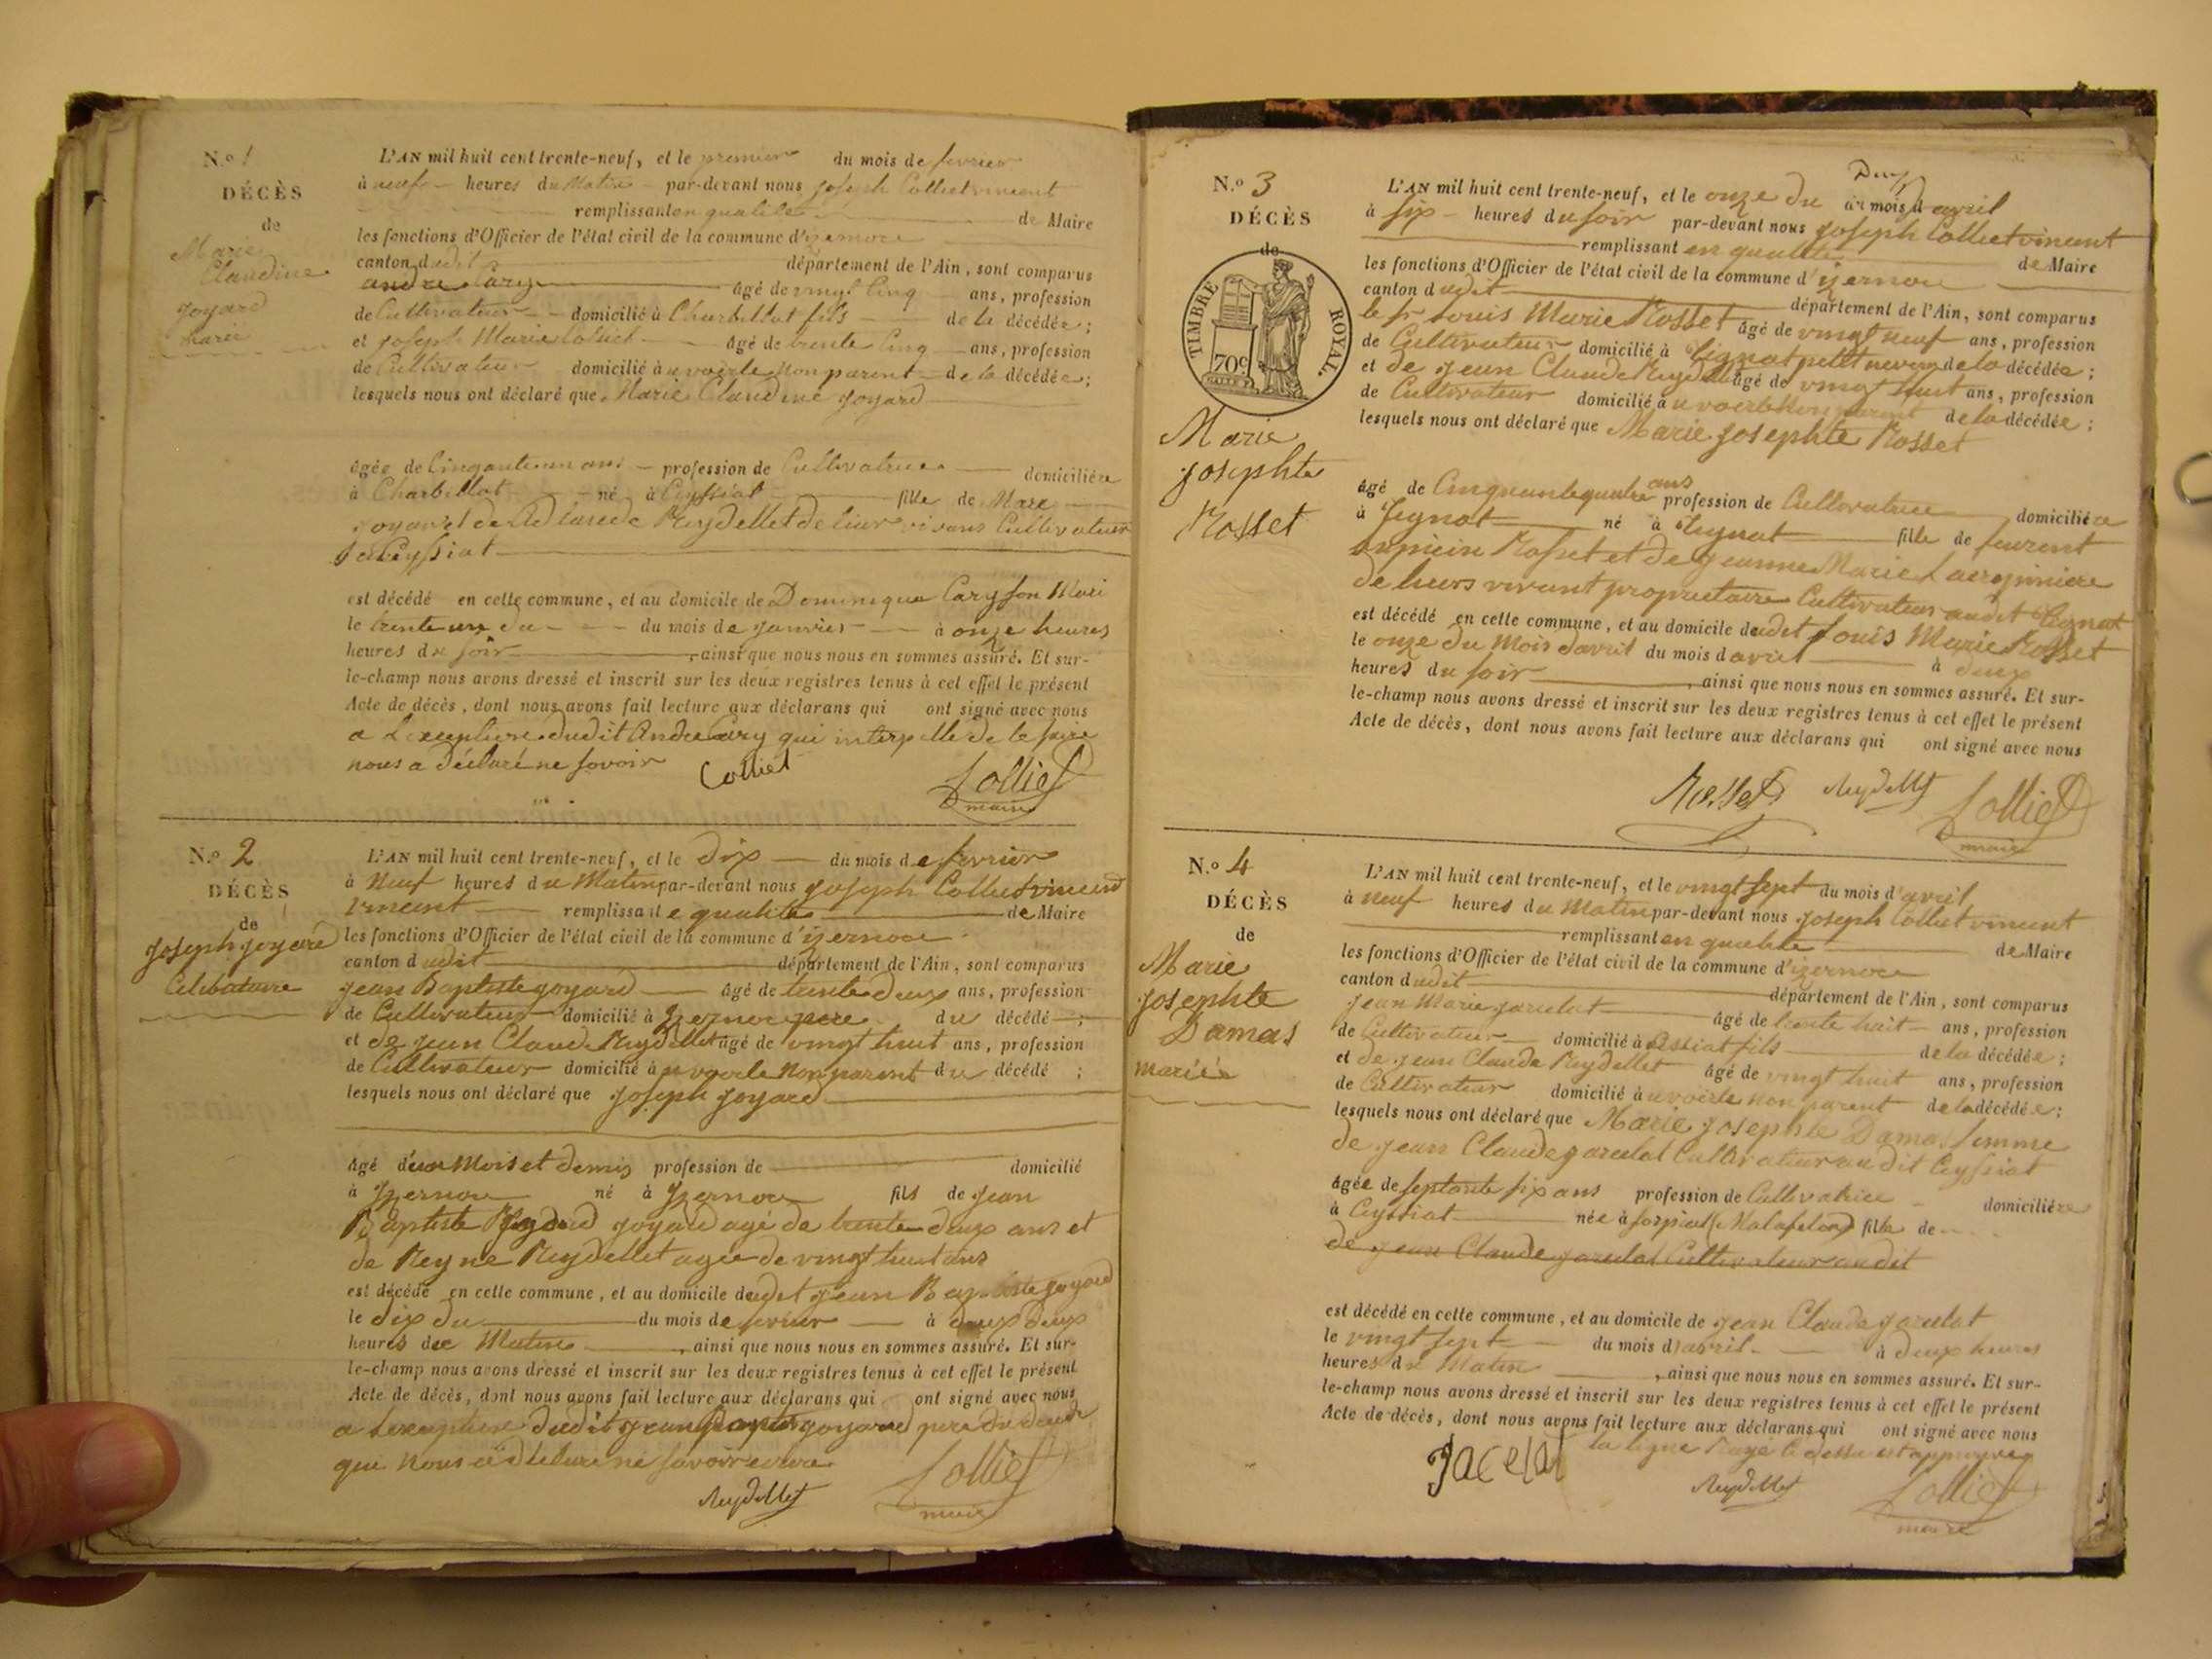 N.o 1
DÉCÈS
de
Marie
Claudine
Joyard
mariée
L'AN mil huit cent trente-neuf, et le premier du mois de fevrier
à neuf heures du Matin par-devant nous Joseph Colliet vincent
remplissant en qualité de Maire
les fonctions d'Officier de l'état civil de la commune d'izernore
canton dudit département de l'Ain, sont comparus
andré Cary âgé de vingt Cinq ans, profession
de Cultivateur domicilié à Charbillat fils de la décédée;
et Joseph Marie Colliet âgé de trente Cinq ans, profession
de Cultivateur domicilié à uvoirle non parent de la décédée;
lesquels nous ont déclaré que Marie Claudine Joyard
âgée de Cinquante un ans profession de Cultivatrice domiciliée
à Charbillat né à Ceyssiat fille de Marc
Joyard et de Reydellet de leur vivans Cultivateur
à Ceyssiat
est décédé en cette commune, et au domicile de Dominique Cary son Mari
le trente un du du mois de Janvier à onze heures
heures du soir, ainsi que nous nous en sommes assuré. Et sur-
le-champ nous avons dressé et inscrit sur les deux registres tenus à cet effet le présent
Acte de décès, dont nous avons fait lecture aux déclarans qui ont signé avec nous
a L'exception dudit André Cary qui interpellé de le faire
nous a déclaré ne savoir
Colliet
Colliet
maire
N.o 2
DÉCÈS
de
Joseph Joyard
Celibataire
L'AN mil huit cent trente-neuf, et le dix du mois de fevrier
à Neuf heures du Matin par-devant nous Joseph Colliet vincend
vincent remplissant e qualité de Maire
les fonctions d'Officier de l'état civil de la commune d'izernore
canton dudit département de l'Ain, sont comparus
Jean Baptiste Joyard âgé de trente deux ans, profession
de Cultivateur domicilié à Izernore pere du décédé;
et de Jean Claude Reydellet âgé de vingt huit ans, profession
de Cultivateur domicilié à uvoirle non parent du décédé;
lesquels nous ont déclaré que Joseph Joyard
âgé d'un Mois et demis profession de domicilié
à Izernore né à Izernore fils de Jean
Baptiste Joyard agé de trente deux ans et
de Reyne Reydellet agée de vingt huit ans
est décédé en cette commune, et au domicile dudit Jean Baptiste Joyard
le dix du du mois de fevrier à deux deux
heures du Matin, ainsi que nous nous en sommes assuré. Et sur-
le-champ nous avons dressé et inscrit sur les deux registres tenus à cet effet le présent
Acte de décès, dont nous avons fait lecture aux déclarans qui ont signé avec nous
a L'exeption dudit Jean Baptiste Joyard pere du décédé
qui nous a déclaré ne savoir ecrire
Reydellet
Colliet
maire
N.o 3
DÉCÈS
de
TIMBRE ROYAL.
70c
Marie
Josephte
Rosset
Deux
L'AN mil huit cent trente-neuf, et le onze du du mois d avril
à six heures du soir par-devant nous Joseph Colliet vincent
remplissant en qualité de Maire
les fonctions d'Officier de l'état civil de la commune d'izernore
canton dudit département de l'Ain, sont comparus
le sr Louis Marie Rosset âgé de vingt neuf ans, profession
de Cultivateur domicilié à Tignat petit neveu de la décédée;
et de Jean Claude Reydellet âgé de vingt huit ans, profession
de Cultivateur domicilié à uvoirle non parent de la décédée;
lesquels nous ont déclaré que Marie Josephte Rosset
âgé de Cinquante quatre ans profession de Cultivatrice domiciliée
à Tignat né à Tignat fille de feu
Rosset et de Jeanne Marie
de leurs vivant propriétaire Cultivateur audit Tignat
est décédé en cette commune, et au domicile dudit Louis Marie Rosset
le onze du Mois d'avril du mois d avril à deux
heures du soir, ainsi que nous nous en sommes assuré. Et sur-
le-champ nous avons dressé et inscrit sur les deux registres tenus à cet effet le présent
Acte de décès, dont nous avons fait lecture aux déclarans qui ont signé avec nous
Rosset Reydellet Colliet
maire
N.o 4
DÉCÈS
de
Marie
Josephte
Damas
mariée
L'AN mil huit cent trente-neuf, et le vingt sept du mois d'avril
à neuf heures du Matin par-devant nous Joseph Colliet vincent
remplissant en qualité de Maire
les fonctions d'Officier de l'état civil de la commune d'izernore
canton dudit département de l'Ain, sont comparus
Jean Marie Jacelat âgé de trente huit ans, profession
de Cultivateur domicilié à Cessiat fils de la décédée;
et de Jean Claude Reydellet âgé de vingt huit ans, profession
de Cultivateur domicilié à uvoirle non parent de la décédée;
lesquels nous ont déclaré que Marie Josephte Damas femme
de Jean Claude Jacelat Cultivateur audit Ceyssiat
âgée de septante six ans profession de Cultivatrice domiciliée
à Ceyssiat née à fille de
de Jean Claude Jacelat Cultivateur audit
est décédé en cette commune, et au domicile de Jean Claude Jacelat
le vingt sept du mois d'avril à deux heures
heures du Matin, ainsi que nous nous en sommes assuré. Et sur-
le-champ nous avons dressé et inscrit sur les deux registres tenus à cet effet le présent
Acte de décès, dont nous avons fait lecture aux déclarans qui ont signé avec nous
la ligne Rayé Ci dessu est approuvée
Jacelat
Reydellet
Colliet
maire